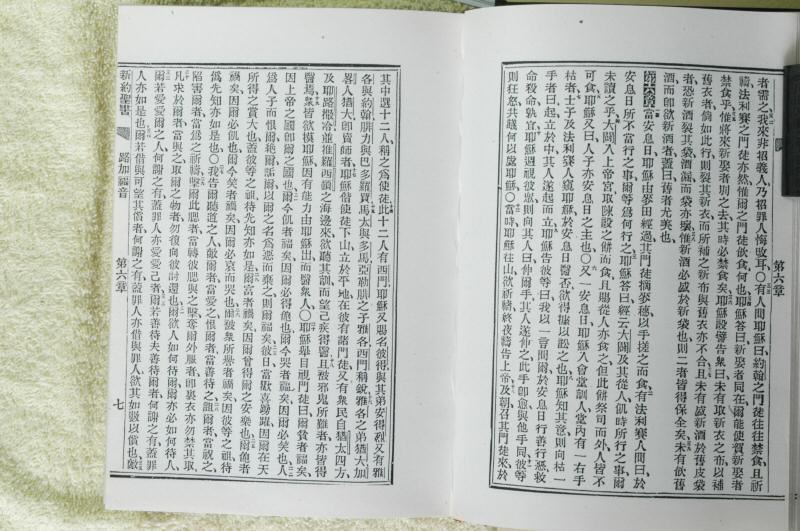 者需之我來非招義人乃招罪人悔改耳〇有人問耶穌曰約翰之門徒往往禁食且祈
禱法利賽之門徒亦然惟爾之門徒飲食何也耶穌答曰新娶者同在爾能使賀新娶者
禁食乎惟將來新娶者別之去其時必禁食矣耶穌設譬告衆曰未有取新衣之布以補
舊衣者倘如此行則裂其新衣而所補之新布與舊衣亦不合且未有盛新酒於舊皮袋
者恐新酒裂其袋酒漏而袋亦壞惟新酒必盛於新袋也則二者皆得保全矣未有飲舊
酒而卽欲新酒者蓋曰舊者尤美也
第六章 當安息日耶穌由麥田經過其門徒摘麥穗以手搓之而食有法利賽人問曰於
安息日所不當行之事爾等爲何行之耶穌答曰經云大闢及其從人飢時所行之事爾
未讀之乎大闢入上帝宮取陳設之餅而食且賜從人亦食之但此餅祭司而外人皆不
可食耶穌又曰人子亦安息日之主也〇又一安息日耶穌入會堂訓人堂內有一右手
枯者士子及法利賽人窺耶穌於安息日醫否欲得據以訟之也耶穌知其意則向枯一
手者曰起立於中其人遂起而立耶穌告彼等曰我以一言問爾於安息日行善行惡救
命殺命孰宜耶穌遍視彼衆則向其人曰伸爾手其人遂伸之此手卽愈與他手同彼等
則狂怒共議何以處耶穌〇當時耶穌往山欲祈禱終夜禱告上帝及朝召其門徒來於
第六章
其中選十二人稱之爲使徒此十二人有西門耶穌又賜名彼得與其弟安得烈又有雅
各與約翰腓力與巴多羅買馬太與多馬亞勒腓之子雅各西門稱銳雅各之弟猶大加
畧人猶大卽賣師者耶穌偕使徒下山立於平地在彼有諸門徒又有衆民自猶太四方
及耶路撒冷並推羅西頓之海邊來欲聽其訓而望己疾得醫且被邪鬼所難者亦皆得
醫焉衆皆欲摸耶穌因有能力由耶穌出而醫衆人〇耶穌舉目視門徒曰爾貧者福矣
因上帝之國卽爾之國也爾今飢者福矣因爾必得飽也爾今哭者福矣因爾必笑也人
爲人子而恨爾絕爾詬爾以爾之名爲惡而棄之則爾福矣彼日當歡喜踴躍因爾在天
所得之賞大也蓋彼等之祖待先知亦如是爾富者禍矣因爾已得爾之安樂也爾飽者
禍矣因爾必飢也爾今笑者禍矣因爾必哀而哭也爾被衆所譽者禍矣因彼等之祖待
僞先知亦如是也〇我告爾聽道之人敵爾者當愛之恨爾者當善待之詛爾者當祝之
陷害爾者當爲之祈禱擊爾此腮者當轉彼腮與之擊奪爾外服者卽裏衣亦勿禁其取
凡求於爾者當與之取爾之物者勿復向彼討還也爾欲人如何待爾爾亦必如何待人
爾若愛愛爾之人何謝之有蓋罪人亦愛愛己者爾若善待夫善待爾者何謝之有蓋罪
人亦如是也爾若借與可望其償者何謝之有蓋罪人亦借與罪人欲其如數以償也敵
新約聖書
路加福音
第六章
七